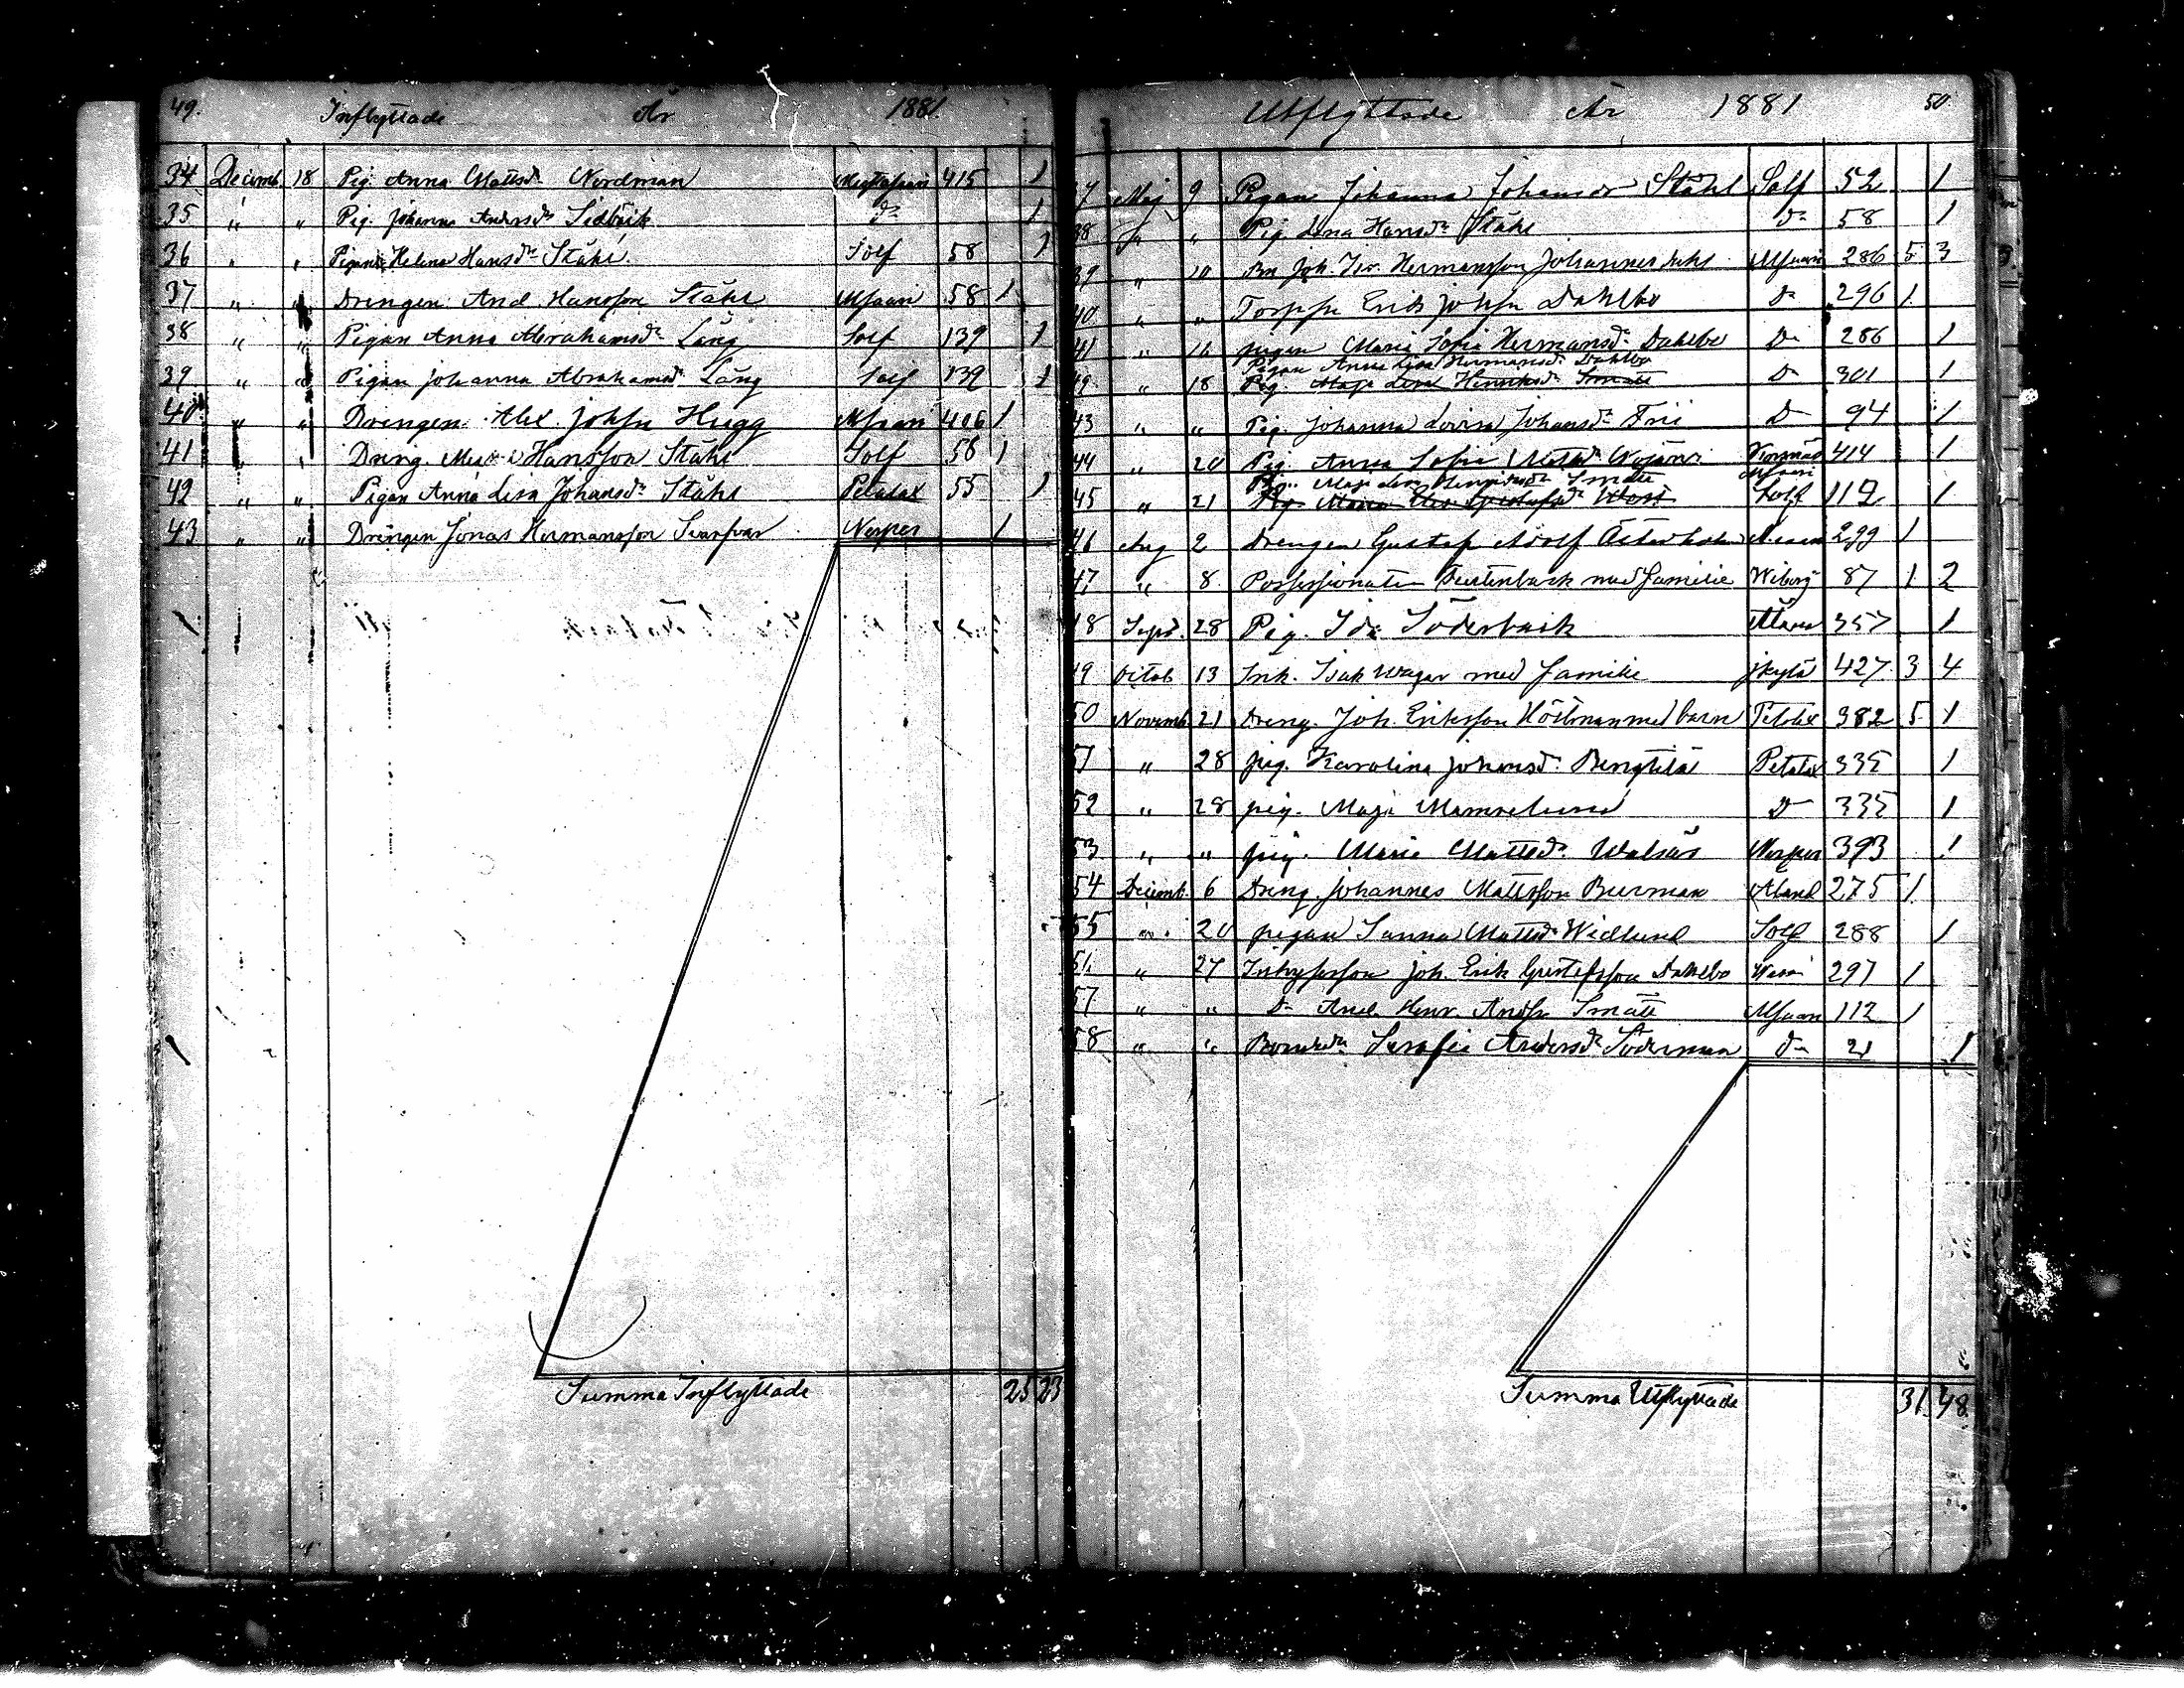 49. Inflyttade År 1881.
34 Decemb 18 Pig. Anna Mattsdr Nordman 415 1
35 " " Pig. Johanna Andersdr Sidbäck do 1
36 " " Pigan Helena Hansdr Ståhl Solf 58 1
37 " " Drengen And. Hansson Ståhl Msaari 58 1
38 " " Pigan Anna Abrahamsdr Lång Solf 139 1
39 " " Pigan Johanna Abrahamsdr Lång Solf 139 1
40 " " Drengen Alex. Johsn Hugg Msaari 406 1
41 " " Dreng. Hansson Ståhl Solf 58 1
42 " " Pigan Anna Lisa Johansdr Ståhl Petalax 55 1
43 " " Drengen Jonas Hermansson Svarfvar Nerpes 1
Summa Inflyttade 25 23
Utflyttade År 1881 50.
37 Maj 9 Pigan Johanna Johansdr Ståhl Solf 52 1
38 " " Pig. Lena Hansdr Ståhl do 58 1
39 " 10 Bn Joh. Isr. Hermansson Johannesdahl Msaari 286 5 3
40 " " Torpsn Erik Johsn Dahlbo Do 296 1
41 " 16 pigan Maria Sofia Hermansdr Dahlbo Do 286 1
Pigan Anna Lisa Hermansdr Dahlbo
42 " 18 Pig. Maja Lisa Henriksdr Smått D 301 1
43 " " Pig. Johanna Lovisa Johansdr Frii D 94 1
44 " 20 Pig. Anna Sofia Mattsdr Korsnäs 414 1
Pig. Maja Lisa Henriksdr Smått Msaari
45 " 21 Pig. Maria Gustafsdr Solf 112 1
46 Aug 2 Drengen Gustaf Adolf Österholm 299 1
47 " 8 Possessionaten med familie Wiborg 87 1 2
48 Sept. 28 Pig. Ida Söderback 357 1
49 Octob 13 Inh. Isak Wagar med familie 427 3 4
50 Novemb 21 Dreng. Joh. Eriksson med barn Petalax 382 5 1
51 " 28 pig. Karolina Johansdr Petalax 335 1
52 " 28 pig. Maja D 335 1
53 " " pig. Maria Mattsdr Nerpes 393 1
54 Decemb. 6 Dreng. Johannes Mattsson Burman Åland 275 1
55 " 20 pigan Sanna Mattsdr Widlund Solf 288 1
56 " 27 Inhysesson Joh. Erik Gustafsson Dahlbo Wasa 297 1
57 " " D And. Henr. Andsn Smått Msaari 112 1
58 " " Bondedr Serafia Andersdr Söderman do 21 1
Summa Utflyttade 31 48